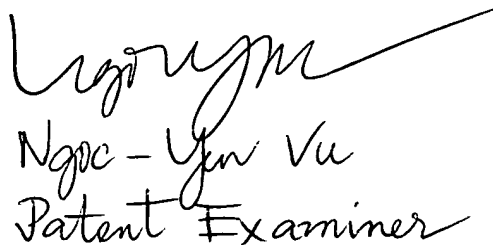 Ngoc - Yen Vu
Patent Examiner